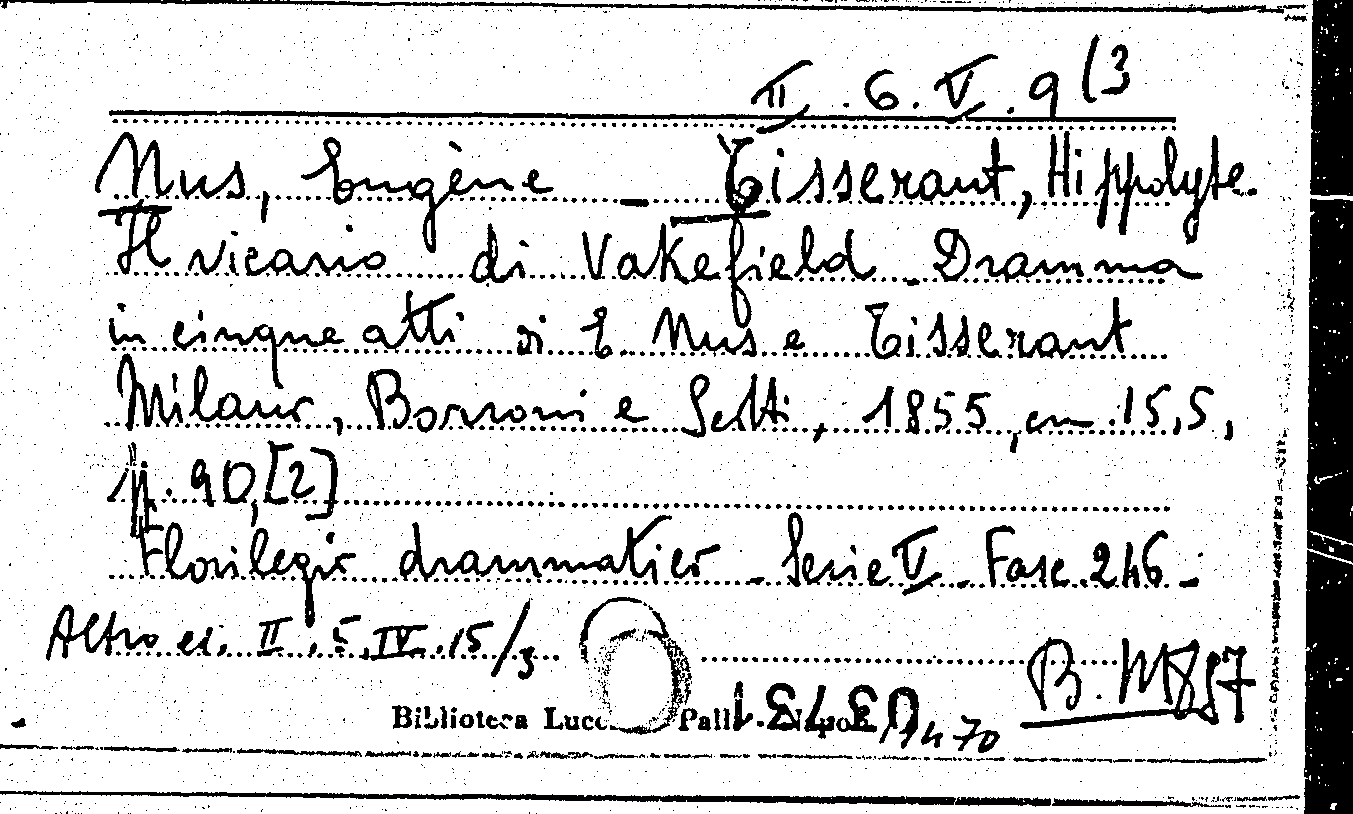 II.6.V.9(3
Nus, Eugène - Tisserant, Hippolyte.
Il vicario di Vakefield. Dramma
in cinque atti di E. Nus e Tisserant
Milano, Borroni e Scotti, 1855, cm. 15,5,
p. 90,[2]
Florilegio drammatico - Serie V - Fasc. 246 -
Altro es. II.5.IV.15/3
B. M
Biblioteca Lucc Palli